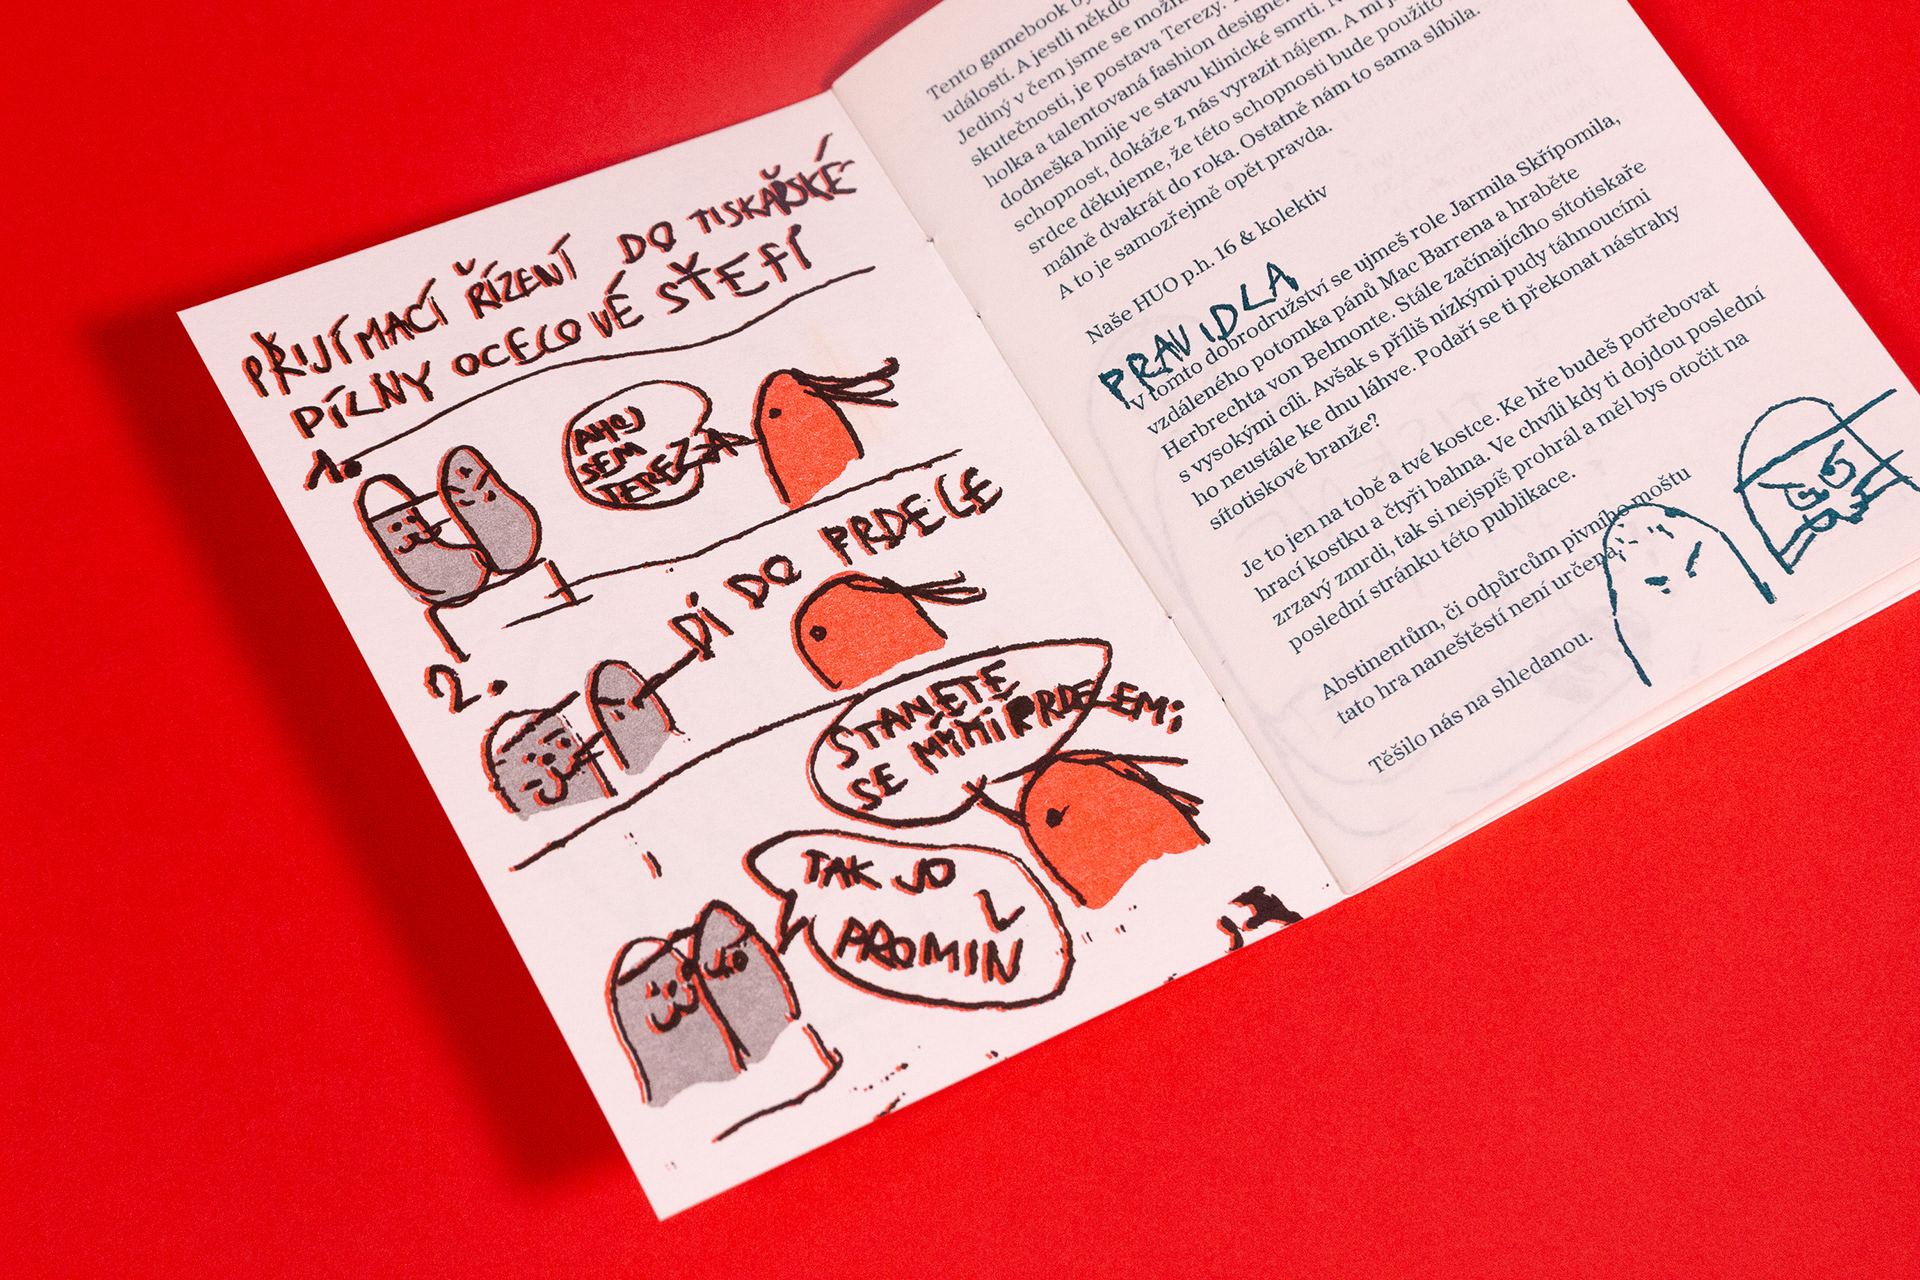 PŘIJÍMACÍ ŘÍZENÍ DO TISKAŘSKÉ
PÍLNY OCELOVÉ SŤEFÍ
1.
AHOJ
SEM
TEREZA
2.
DI DO PRDELE
STANETE
SE MÍNÍPRDELEMI
TAK JO
PROMIŇ
Tento gamebook
událostí. A jestli někdo
Jediný v čem jsme se možná
skutečnosti, je postava Terezy.
holka a talentovaná fashion designer
dodneška hnije ve stavu klinické smrti.
schopnost, dokáže z nás vyrazit nájem. A mi
srdce děkujeme, že této schopnosti bude použito
málně dvakrát do roka. Ostatně nám to sama slíbila.
A to je samozřejmě opět pravda.
Naše HUO p.h. 16 & kolektiv
PRAVIDLA
V tomto dobrodružství se ujmeš role Jarmila Skřípomila,
vzdáleného potomka pánů Mac Barrena a hraběte
Herbrechta von Belmonte. Stále začínajícího sítotiskaře
s vysokými cíli. Avšak s příliš nízkými pudy táhnoucími
ho neustále ke dnu láhve. Podaří se ti překonat nástrahy
sítotiskové branže?
Je to jen na tobě a tvé kostce. Ke hře budeš potřebovat
hrací kostku a čtyři bahna. Ve chvíli kdy ti dojdou poslední
zrzavý zmrdi, tak si nejspíš prohrál a měl bys otočit na
poslední stránku této publikace.
Abstinentům, či odpůrcům pivního moštu
tato hra naneštěstí není určena.
Těšilo nás na shledanou.